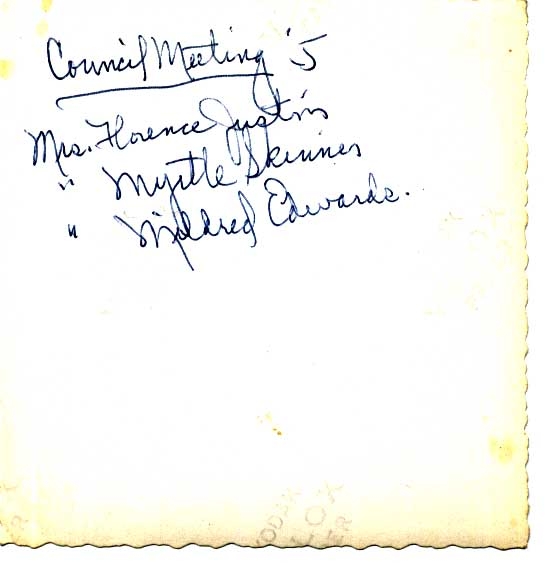 Council Meeting '5
Mrs. Florence Justin
" Myrtle Skinner
" Mildred Edwards.